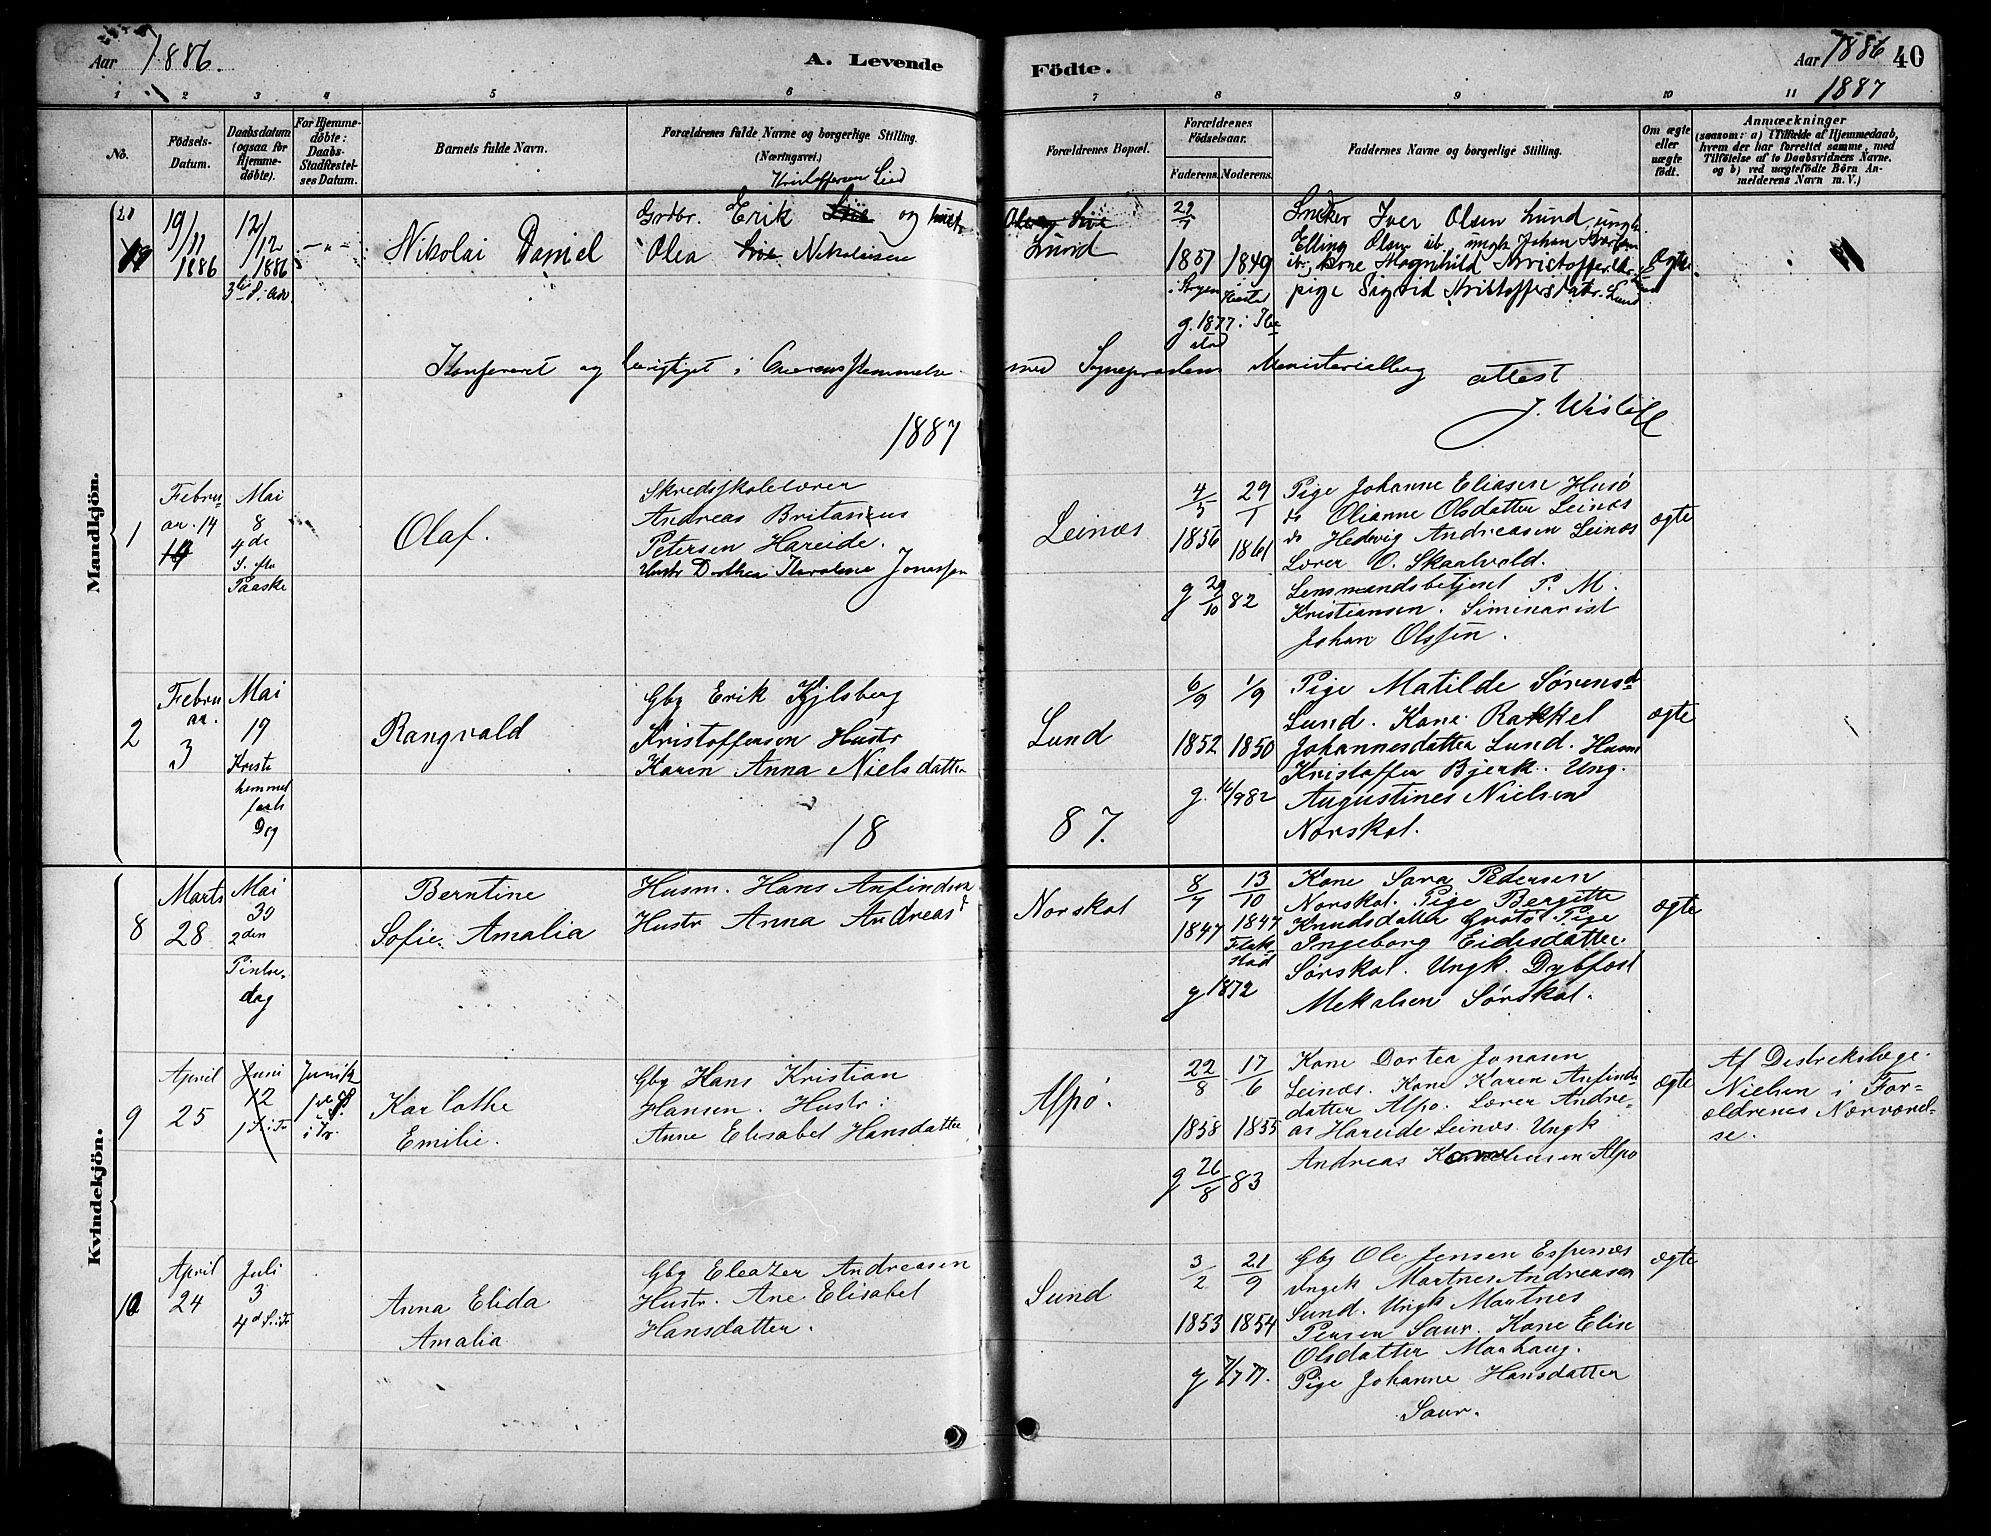 Aar 1886.
A. Levende
Födte.
Aar 1886 40
1887
1 2 3 4 5 6 7 8 9 10 11
No.
Födsels-
Datum.
Daabsdatum
(ogsaa for
Hjemme-
døbte).
For Hjemme-
døbte:
Daabs-
Stadfæstel-
ses Datum.
Barnets fulde Navn.
Forældrenes fulde Navne og borgerlige Stilling.
(Næringsvei.)
Forældrenes Bopæl.
Forældrenes
Födselsaar.
Faderens. Moderens.
Faddernes Navne og borgerlige Stilling.
Om ægte
eller
uægte
födt.
Anmærkninger
(saasom: a) i Tilfælde af Hjemmedaab,
hvem der har forrettet samme, med
Tilföielse af to Daabsvidners Navne.
og b) ved uægtefödte Börn An-
melderens Navn m. V.)
Mandkjön.
19/11
1886
12/12
1886
3die S. i Adv.
-"-
Nikolai Daniel
Kristoffersen Lied
Grdbr. Erik og Hustr
Olea Nikolaisen
Lund
29/7
1857 1849
g. 1877 i Ibe
stad
Snedker Iver Olsen Lund, ungk.
Elling Olsen ib., ungk. Johan
ib., kone Magnhild Kristoffersdtr.
pige Sigrid Kristoffersdatr. Lund
Ægte.
Konfereret og berigtiget i Overensstemmelse
med Sognepræstens Ministerialbog attest
J. Wisløff
1887
1
Febru
ar. 14
Mai
8
4de
S. efter
Paaske
Olaf.
Skredsskolelærer
Andreas Britanius
Petersen Hareide.
Hustr Dorthea Karoline Jonassen
Leinæs
4/5 29/1
1856 1861
g 29/10 82
Pige Johanne Eliasen Husö
do Olianne Olsdatter Leinæs
do Hedvig Andreasen Leinæs
Lærer O. Skaalvold.
Lensmandsbetjent P. M.
Kristiansen. Siminarist
Johan Olssen.
ægte
2
Febru
ar.
3
Mai
19
Kristi
himmel
farts
Dag
Rangvald
Gbg Erik Kjilsberg
Kristoffersen Hustr
Karen Anna Nielsdatter
Lund
6/9 1/9
1852 1850
g. 14/9 82
Pige Matilde Sørensd
Lund. Kone Rakkel
Johannesdatter Lund. Husm
Kristoffer Bjerk. Ung.
Augustines Nielsen
Norskot.
ægte
18
87.
Kvindekjön.
8
Marts
28
Mai
30
2den
Pintse-
dag
Berntine
Sofie. Amalia
Husm. Hans Anfindsen
Hustr Anna Andreasd
Norskot
8/7 13/10
1847 1847
Flak-
stad
g 1872
Kone Sara Pedersen
Norskot. Pige Bergitte
Knudsdatter Grøtø. Pige
Ingeborg Eidisdatter.
Sørskot. Ungk. Dybfest
Mekalsen Sørskot.
ægte
9
April
25
Juni
12
1 S. i Tr
Juni 12
1ste S.
i Tr.
Karlothe
Emilie.
Gbg Hans Kristian
Hansen. Hustr:
Anne Elisabet Hansdatter
Alpø.
22/8 17/6
1858 1855
g 26/8 83
Kone Dortea Jonasen
Leinæs. Kone Karen Anfinds-
datter Alpø. Lærer Andre-
as Hareide Leinæs. Ungk
Andreas Korneliusen Alpø
ægte
Af Distrikslæge
Nielsen i For-
ældrenes Nærværel-
se.
10
April
24
Juli
3
4d S. i Tr
Anna Elida
Amalia
Gbg Eleazer Andreasen
Hustr. Ane Elisabet
Hansdatter.
Sund
3/2 21/9
1853 1854
g 7/7 77.
Gbg Ole Jensen Espenes
ungk Martnes Andreasen
Sund. Ungk Martnes
Pensen Saur. Kone Elise
Olsdatter Marhaug.
Pige Johanne Hansdatter
Saur.
ægte